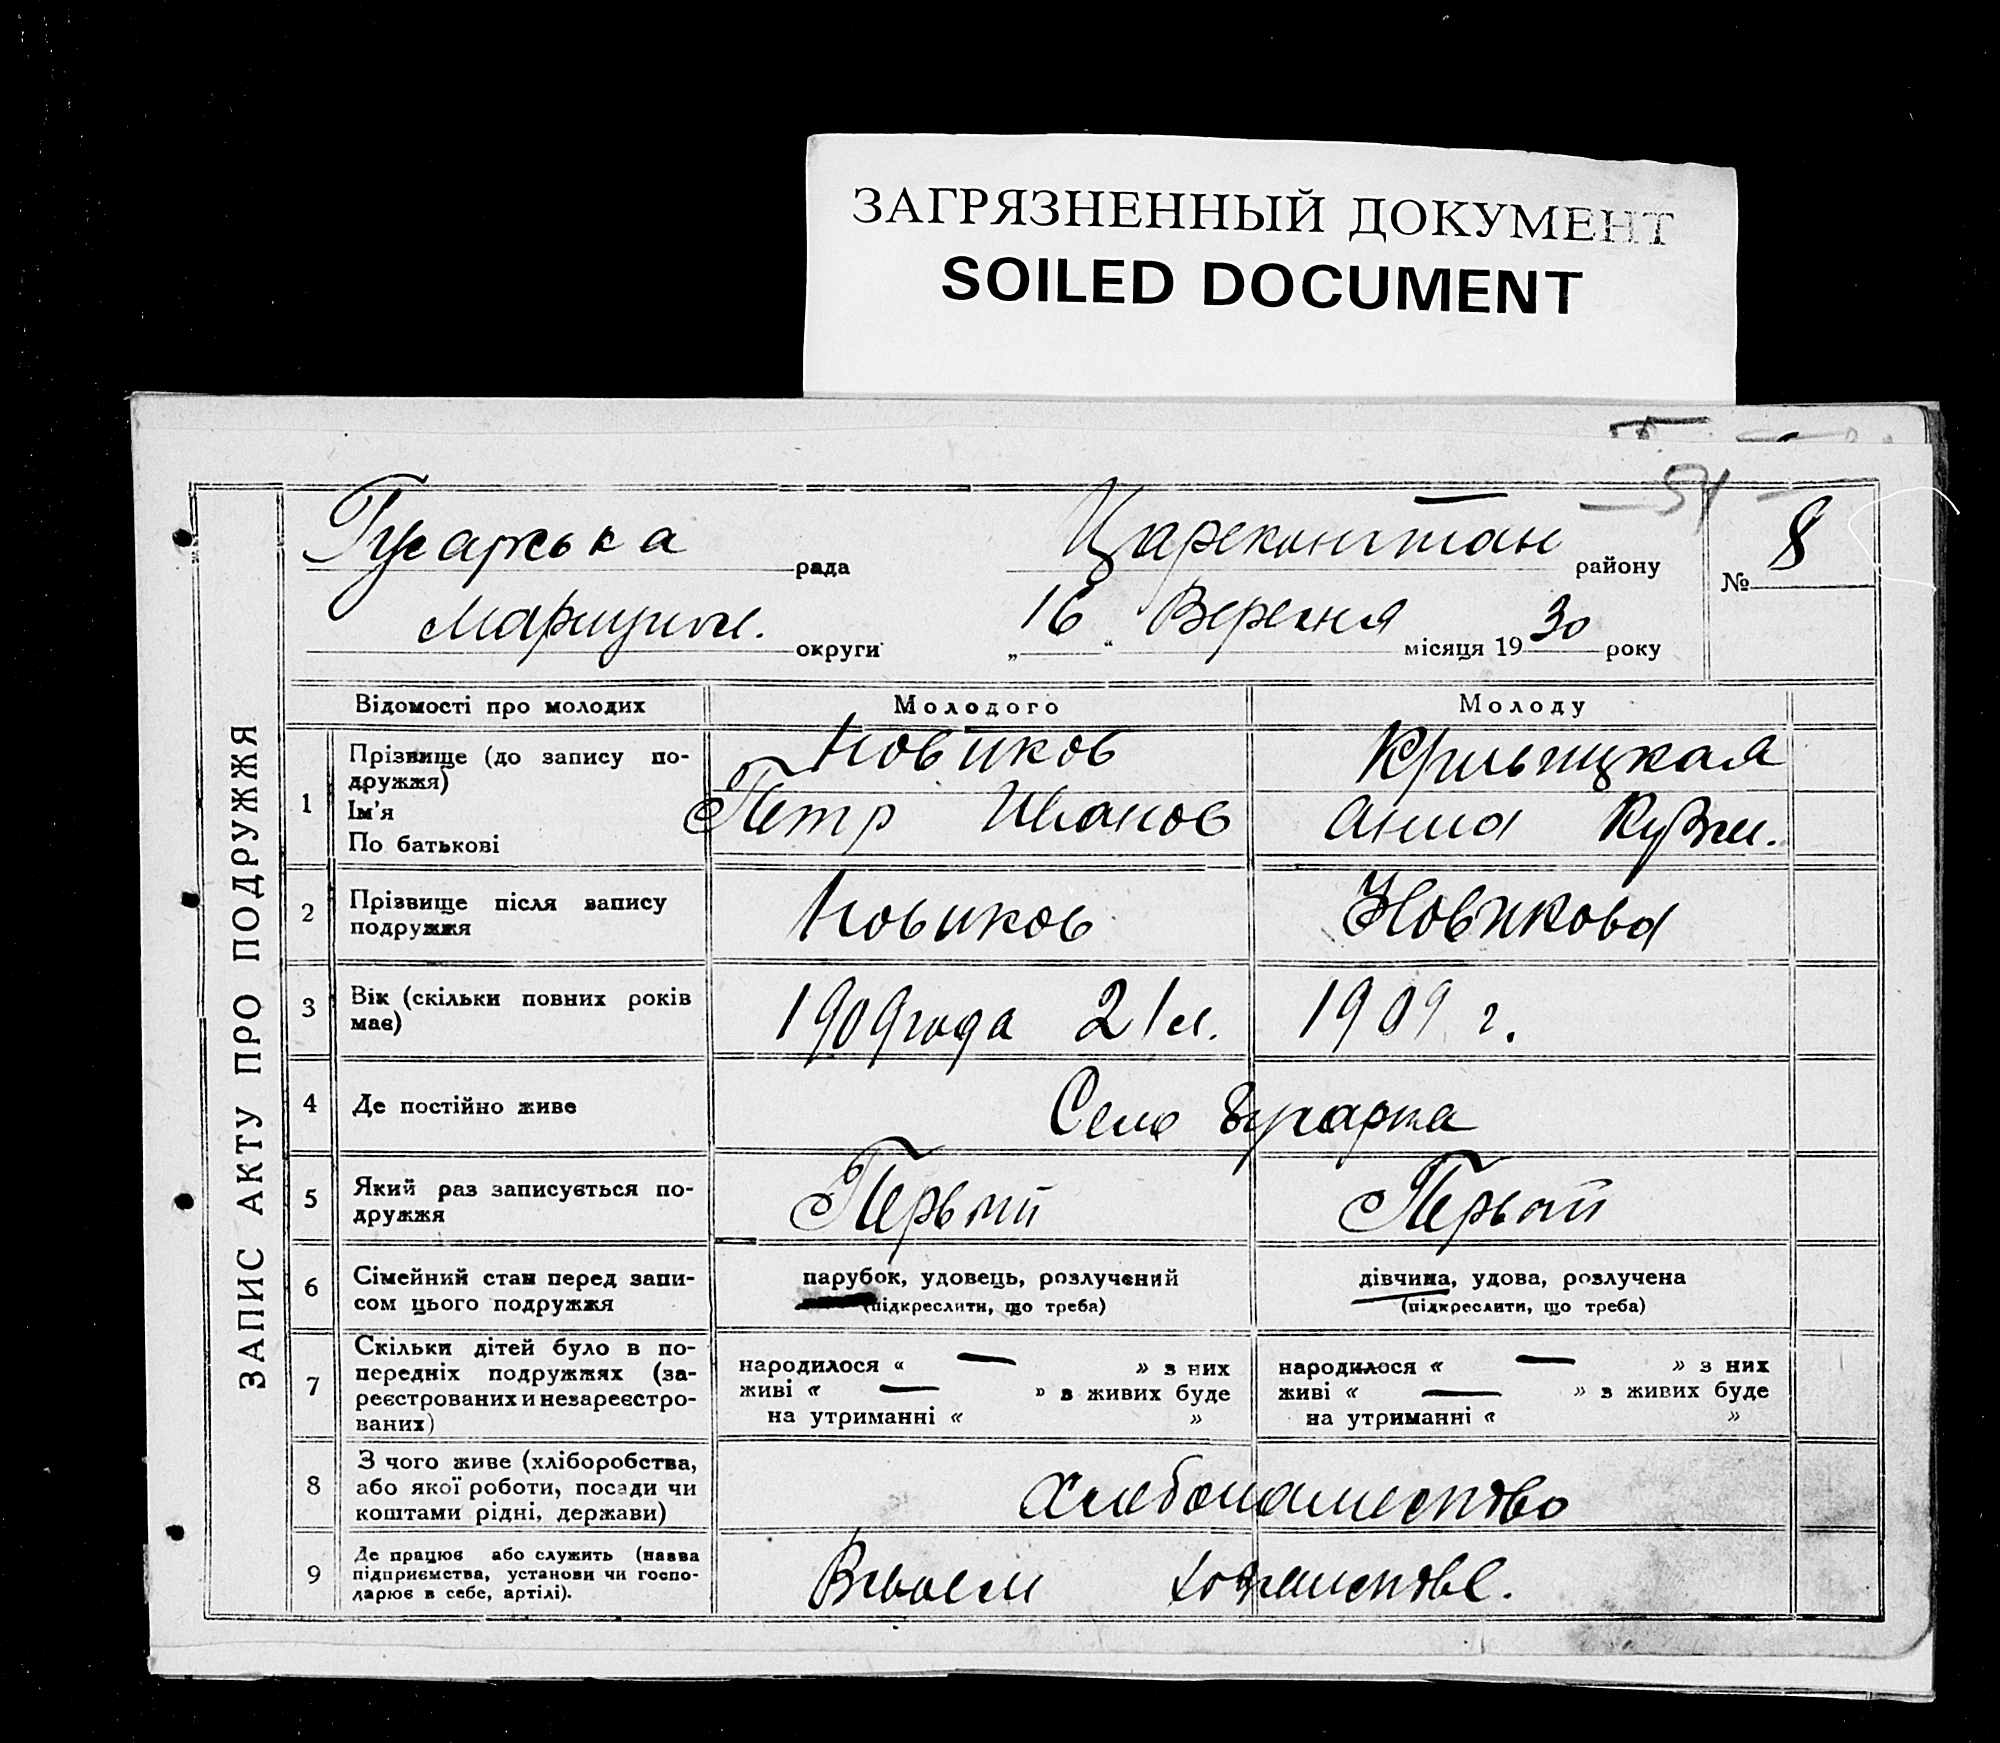 ЗАГРЯЗНЕННЫЙ ДОКУМЕНТ
SOILED DOCUMENT
54
ЗАПИС АКТУ ПРО ПОДРУЖЖЯ
Гусарська рада Царекон район­у № 8
округи „16“ Вересня місяця 1930 року
Відомості про молодих Молодого Молоду
1 Прізвище (до запису по-
дружжя)
Ім'я
По батькові
Новиков
Петр Иванов
Анна Кузм.
2 Прізвище після запису
подружжя
Новиков Новикова
3 Вік (скільки повних років
має)
1909 года 21 л. 1909 г.
4 Де постійно живе Село Гусарка
5 Який раз записується по-
дружжя
Первый Первый
6 Сімейний стан перед запи-
сом цього подружжя
парубок, удовець, розлучений
(підкреслити, що треба)
дівчина, удова, розлучена
(підкреслити, що треба)
7 Скільки дітей було в по-
передніх подружжях (за-
реєстрованих и незареєстро-
ваних)
народилося « — » з них
живі « — » в живих буде
на утриманні « »
народилося « — » з них
живі « — » в живих буде
на утриманні « »
8 З чого живе (хліборобства,
або якої роботи, посади чи
коштами рідні, держави)
Хлебопашество
9 Де працює або служить (назва
підприємства, установи чи госпо-
дарює в себе, артілі).
В своем хозяистве.